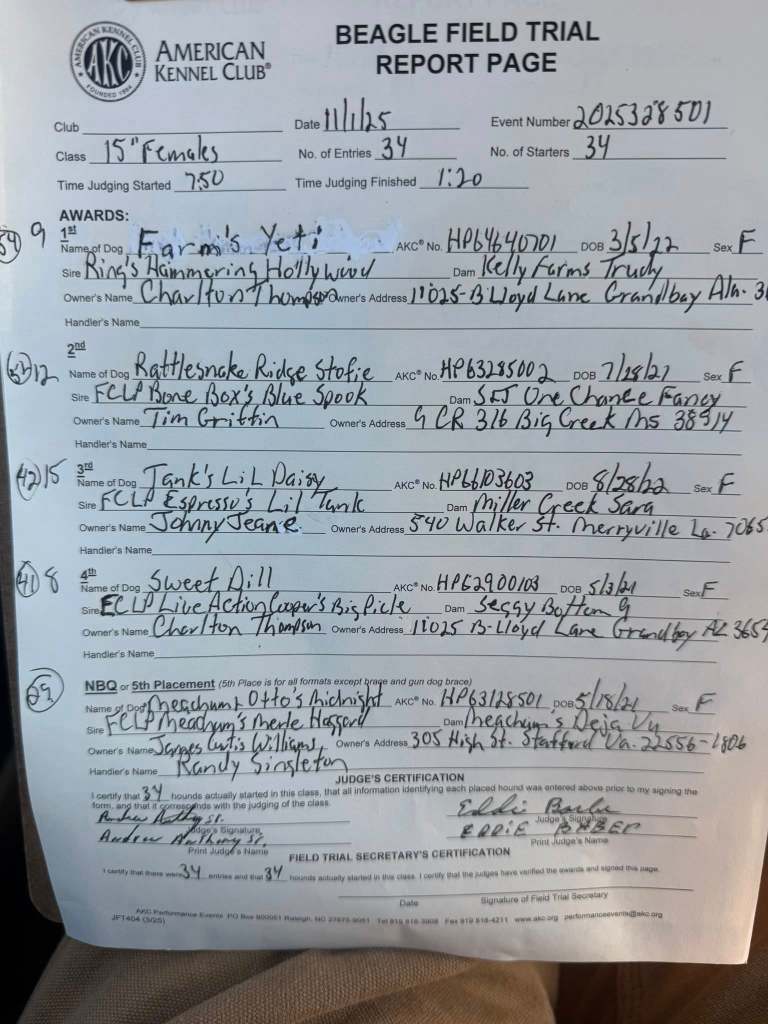 AMERICAN KENNEL CLUB
AKC
FOUNDED 1884
AMERICAN
KENNEL CLUB®
BEAGLE FIELD TRIAL
REPORT PAGE
Club Date 11/1/25 Event Number 2025328501
Class 15" Females No. of Entries 34 No. of Starters 34
Time Judging Started 7:50 Time Judging Finished 1:20
AWARDS:
9 1st
Name of Dog Farmi's Yeti AKC® No. HP64640701 DOB 3/5/22 Sex F
Sire Ring's Hammering Hollywood Dam Kelly Farms Trudy
Owner's Name Charlton Thompson Owner's Address 11025-B Lloyd Lane Grandbay Ala. 3
Handler's Name
2nd
12 Name of Dog Rattlesnake Ridge Stofie AKC® No. HP63285002 DOB 7/28/21 Sex F
Sire FCLP Bone Box's Blue Spook Dam One Chance Fancy
Owner's Name Tim Griffin Owner's Address 9 CR 316 Big Creek Ms 38914
Handler's Name
42 15 3rd
Name of Dog Tank's Lil Daisy AKC® No. HP66103603 DOB 8/28/22 Sex F
Sire FCLP Espresso's Lil Tank Dam Miller Creek Sara
Owner's Name Johnny Jeane Owner's Address 540 Walker St. Merryville La. 7065
Handler's Name
41 8 4th
Name of Dog Sweet Dill AKC® No. HP62900103 DOB 5/3/21 Sex F
Sire FCLP Live Action Cooper's Big Picle Dam Seggy Bottom 9
Owner's Name Charlton Thompson Owner's Address 11025 B-Lloyd Lane Grandbay AL 3654
Handler's Name
29 NBQ or 5th Placement (5th Place is for all formats except brace and gun dog brace)
Name of Dog Meachum & Otto's Midnight AKC® No. HP63128501 DOB 5/18/21 Sex F
Sire FCLP Meachum's Merle Haggard Dam Meachum's Deja Vu
Owner's Name James Curtis Williams, Owner's Address 305 High St. Stafford Va. 22556-1806
Handler's Name Randy Singleton
JUDGE'S CERTIFICATION
I certify that 34 hounds actually started in this class, that all information identifying each placed hound was entered above prior to my signing the
form, and that it corresponds with the judging of the class.
Judge's Signature Judge's Signature
Andrew Anthony Sr. EDDIE BABER
Print Judge's Name Print Judge's Name
FIELD TRIAL SECRETARY'S CERTIFICATION
I certify that there were 34 entries and that 34 hounds actually started in this class. I certify that the judges have verified the awards and signed this page.
Date Signature of Field Trial Secretary
AKC Performance Events PO Box 900051 Raleigh, NC 27675-9051 Tel 919 816-3908 Fax 919 816-4211 www.akc.org performanceevents@akc.org
JFT404 (3/25)